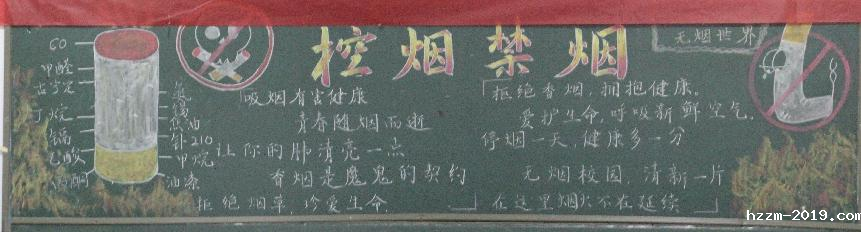 控烟禁烟
无烟世界
CO
甲醛
丁烷
镉
乙酸
氨
焦油
针210
甲烷
油漆
吸烟有害健康
青春随烟而逝
让你的肺清亮一点
香烟是魔鬼的契约
拒绝烟草,珍爱生命.
拒绝香烟,拥抱健康.
爱护生命,呼吸新鲜空气.
停烟一天,健康多一分
无烟校园,清新一片
在这里烟火不在延续
hzzm-2019.com